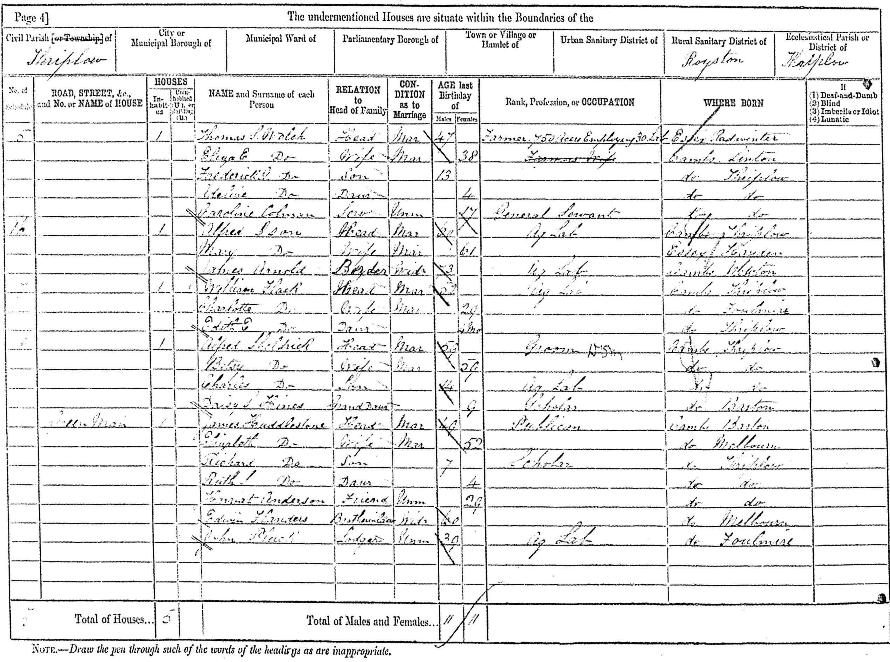 Page 4]
The undermentioned Houses are situate within the Boundaries of the
Civil Parish [or Township] of
City or Municipal Borough of
Municipal Ward of
Parliamentary Borough of
Town or Village or Hamlet of
Urban Sanitary District of
Rural Sanitary District of
Ecclesiastical Parish or District of
Thriplow
Royston
Thriplow
No. of Schedule
ROAD, STREET, &c., and No. or NAME of HOUSE
HOUSES
Inhabited
Uninhabited (U.), or Building (B.)
NAME and Surname of each Person
RELATION to Head of Family
CONDITION as to Marriage
AGE last Birthday of
Males
Females
Rank, Profession, or OCCUPATION
WHERE BORN
If
(1) Deaf-and-Dumb
(2) Blind
(3) Imbecile or Idiot
(4) Lunatic
5 1 Thomas S. Head Mar 47 Farmer 750 Acres Employing 30 Lab Essex Radwinter
Eliza E. Do Wife Mar 38 Farmers Wife Cambs Linton
Frederick Do Son 13 do Thriplow
Adeline Do Daur 4 do do
Caroline Colman Serv Unm 17 General Servant do do
1 Alfred Ison Head Mar Ag Lab Cambs Thriplow
Mary Do Wife Mar 61 Essex
James Arnold Boarder Widr Ag Lab Cambs
1 William Flack Head Mar Ag Lab Cambs Thriplow
Charlotte Do Wife Mar 29 do Foulmire
Edith E Do Daur Mo do Thriplow
1 Alfred Sheldrick Head Mar 59 Groom Cambs Thriplow
Betsy Do Wife Mar 59 do do
Charles Do Son 14 Ag Lab do
Daisy S. Hines Grand Daur 9 Scholar do Barton
Green Man 1 James Huddlestone Head Mar Publican Cambs Barton
Elizabeth Do Wife Mar 52 do Melbourn
Richard Do Son 7 Scholar do Thriplow
Ruth Do Daur 4 do do
Anderson Friend Unm 29 do do
Edwin Flanders Brother in law Widr 60 do Melbourn
John Lodger Unm 30 Ag Lab do Foulmire
5 Total of Houses... 5 Total of Males and Females... 11 11
NOTE.—Draw the pen through such of the words of the headings as are inappropriate.